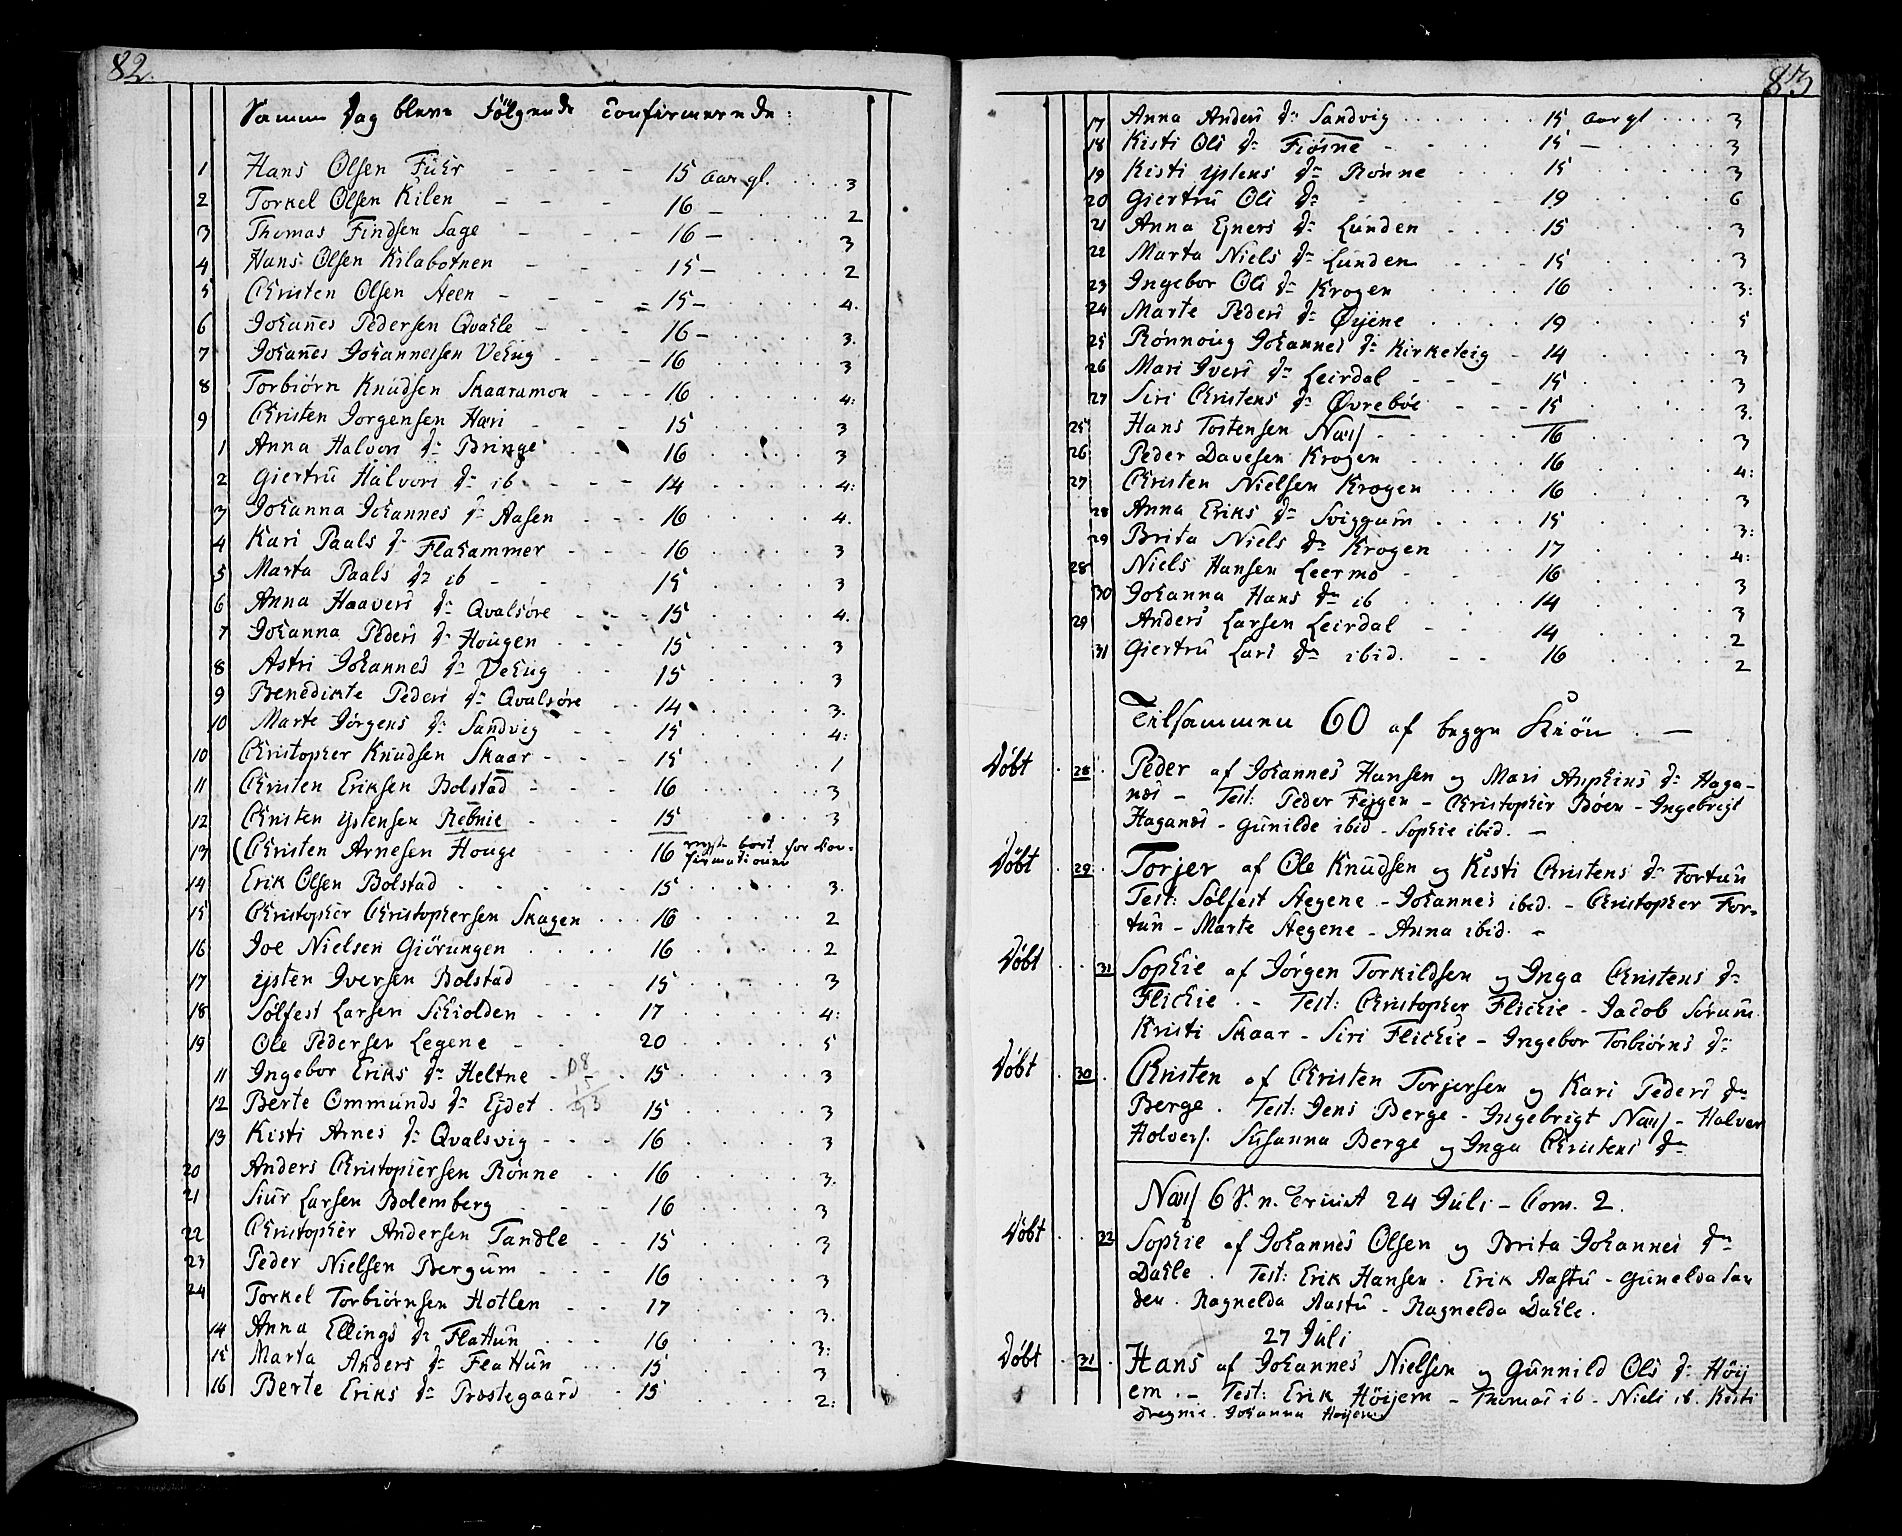 82.
Samme Dag bleve Følgende Confirmerede:
1 Hans Olsen Fuhr - - - - 15 Aar gl. .... 3
2 Torkel Olsen Kilen - - - 16 - ..... 2
3 Thomas Findsen Sage - - - 16 - .... 3
4 Hans Olsen Kilabotnen - - - 15 - .... 2
5 Christen Olsen Steen - - - - 15 - .... 4.
6 Johannes Pedersen Qvahle - - - 16 - .... 3.
7 Johannes Johannessen Vehug - - - 16 .... 3
8 Torbiørn Knudsen Skaaramon - - - 16 .... 4:
9 Christen Jorgensen Hæri - - - 15 .... 3
1 Anna Halvors Dr Bringe - - 16 .... 3
2 Giertru Halvors Dr ib - - - 14 .... 4:
3 Johanna Johannes Dr Aasen - - - 16 .... 4.
4 Kari Paals Dr Flahammer - - - 16 .... 3
5 Marta Paals Dr ib - - - 15 .... 3
6 Anna Haavers Dr Qvalsøre - - - 15 .... 4.
7 Johanna Peders Dr Hougen - - - 15 .... 3
8 Astri Johannes Dr Vehug - - - 15 .... 3
9 Benedikte Peders Dr Qvalsøre - - 14 .... 3.
10 Marte Jørgens Dr Sandvig - - 15 .... 4:
10 Christopher Knudsen Skaar - - - 15 .... 1
11 Christen Eriksen Bolstad - - - 16 .... 3
12 Christen Ystensen Rebnie - - - 15 .... 3
13 (Christen Arnesen Houge - - - 16 reyste bort for Con-
firmationen
14 Erik Olsen Bolstad . . . . 15 .... 3.
15 Christopher Christophersen Skagen ... 16 .... 2
16 Joe Nielsen Giörungen . . . 16 .... 2
17 Ysten Iversen Bolstad . . . 15 .... 3
18 Sølfest Larsen Schiolden - - - 17 .... 4:
19 Ole Pedersen Legene - - - 20 .... 5
11 Ingebor Eriks Dr Heltne - - - 15 .... 3
12 Berte Ommunds Dr Ejdet . 15 .... 3
13 Kisti Arnes Dr Qvalsvig - - - 16 .... 3
20 Anders Christophersen Rønne - - 16 .... 3.
21 Siur Larsen Bolemberg - - - 16 .... 3
22 Christopher Andersen Tandle - - 15 .... 3
23 Peder Nielsen Bergum - - - 16 .... 3
24 Torkel Torbiørnsen Hotlen - - 17 .... 3.
14 Anna Ellings Dr Flattun . . . 16 .... 3:
15 Marta Anders Dr Flattun ... 15 .... 3
16 Berte Eriks Dr Præstegaard - 15 .... 2:
83
17 Anna Anders Dr Sandvig ...... 15 Aar gl .... 3
18 Kisti Ols Dr Fiösne - - - - 15 - ..... 3
19 Kisti Ystens Dr Rønne .... 15 .... 3
20 Giertru Ols Dr - - - 19 .... 6
21 Anna Ejners Dr Lunden .... 15 .... 3
22 Marta Niels Dr Lunden .... 15 .... 3
23 Ingebor Ols Dr Krogen .... 16 .... 3:
24 Marte Peders Dr Øyene .... 19 .... 5
25 Rønnoug Johannes Dr Kirketeig - 14 .... 3
26 Mari Ivers Dr Leirdal - - - 15 .... 3
27 Siri Christens Dr Øvrebøe - - - 15 .... 3.
25 Hans Tostensen Næss - - - - 16 .... 3
26 Peder Davesen Krogen .... 16 .... 4:
27 Christen Nielsen Krogen .... 16 .... 3
28 Anna Eriks Dr Sviggum .... 15 .... 3:
29 Brita Niels Dr Krogen .... 17 .... 4:
28 Niels Hansen Leermo - - 16 .... 3
30 Johanna Hans Dr ib .... 14 .... 3
29 Anders Larsen Leirdal - - 14 .... 2
31 Giertru Lars Dr ibid. - - 16 .... 2
Tilsammen 60 af begge Kiön . -
Døbt . 28 . Peder af Johannes Hansen og Mari Anphins Dr Haga-
næs - Test: Peder Fejgen - Christopher Böen - Ingebrigt
Haganæs - Gunilde ibid - Sophie ibid. -
Døbt . 29 . Torjer af Ole Knudsen og Kisti Christens Dr Fortun
Test: Sølfest Stegene - Johannes ibid. - Christopher For-
tun - Marte Stegene - Anna ibid. -
Døbt . . 31 Sophie af Jörgen Torkildsen og Inga Christens Dr
Flickie . - Test: Christopher Flickie - Jacob Sørum
Kristi Skaar - Siri Flickie - Ingebor Torbiørns Dr
Døbt . 30 . Christen af Christen Torjersen og Kari Peders Dr
Berge . Test: Jens Berge - Ingebrigt Næss - Halver
Holvers. Susanna Berge og Inga Christens Dr
Næss 6 S. n. Trinit 24 Juli - Com. 2.
Døbt . . 32 Sophie af Johannes Olsen og Brita Johannes Dr
Dahle . Test: Erik Hansen . Erik Aastu - Gunelda San
den . Ragnelda Aastu - Ragnelda Dahle .
27 Juli
Døbt . 31 . Hans af Johannes Nielsen og Gunnild Ols Dr Höij
em . - Test: Erik Höijem - Thomas ib - Niels ib. Kisti
Dregnie . Johanna Höijem